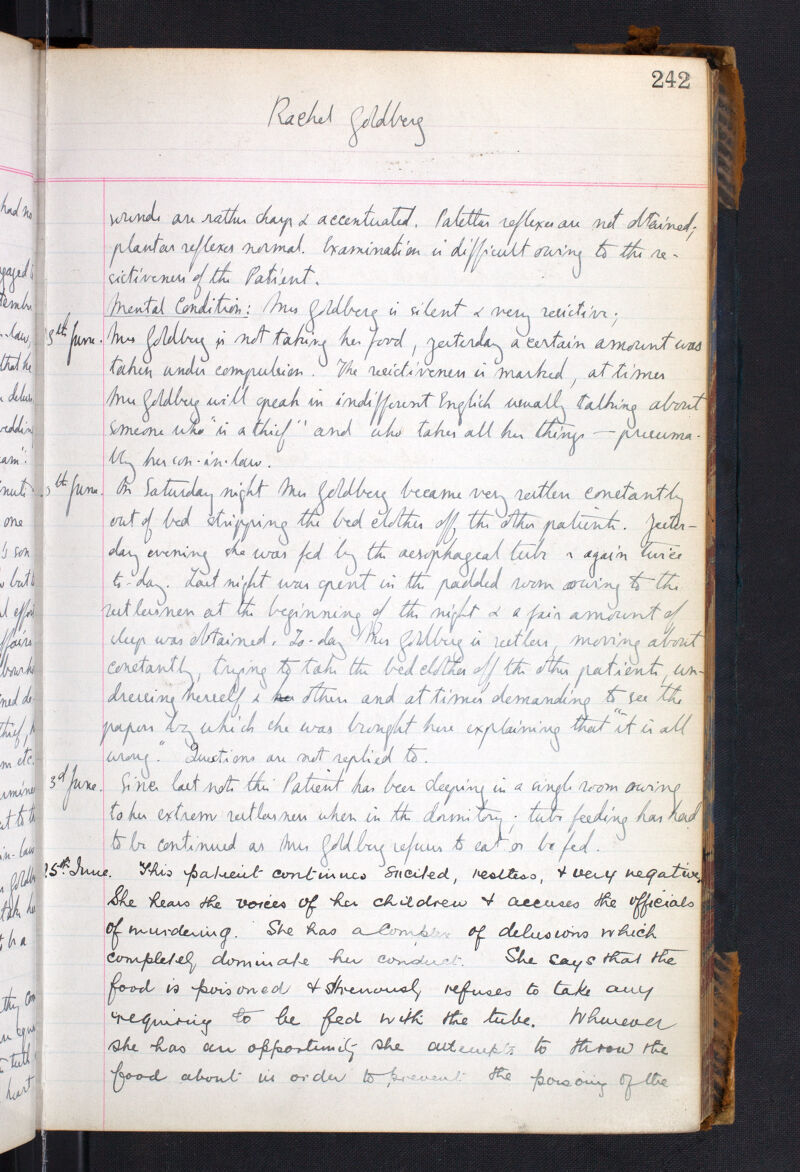 242
Rachel Goldberg
sounds are rather sharp & accentuated. Patellar reflexes are not obtained;
plantar reflexes normal. Examination is difficult owing to the re-
sistiveness of the Patient.
Mental Condition: Mrs Goldberg is silent & very resistive;
13th June. Mrs Goldberg is not taking her food, yesterday a certain amount was
taken under compulsion. The resistiveness is marked, at times
Mrs Goldberg will speak in indifferent English usually talking about
someone who "is a thief" and who takes all her things — presuma-
bly her son-in-law.
th June. On Saturday night Mrs Goldberg became very restless constantly
out of bed stripping the bed clothes off the other patients. Yester-
day evening she was fed by the aesophageal tube & again twice
to-day. Last night was spent in the padded room owing to the
restlessness at the beginning of the night & a fair amount of
sleep was obtained. To-day Mrs Goldberg is restless, moving about
constantly, trying to take the bed clothes off the other patients, un-
dressing herself & others and at times demanding to see the
papers by which she was brought here explaining that "it is all
wrong." Questions are not replied to.
3d June. Since last note this Patient has been sleeping in a single room owing
to her extreme restlessness when in the dormitory; tube feeding has had
to be continued as Mrs Goldberg refuses to eat or be fed.
25th June. This patient continues excited, restless, & very negative.
She hears the voices of her children & accuses the officials
of murdering. She has a complex of delusions which
completely dominate her conduct. She says that the
food is poisoned & strenuously refuses to take any
requiring to be fed with the tube. Whenever
she has an opportunity she attempts to throw the
food about in order to prevent the poisoning of the